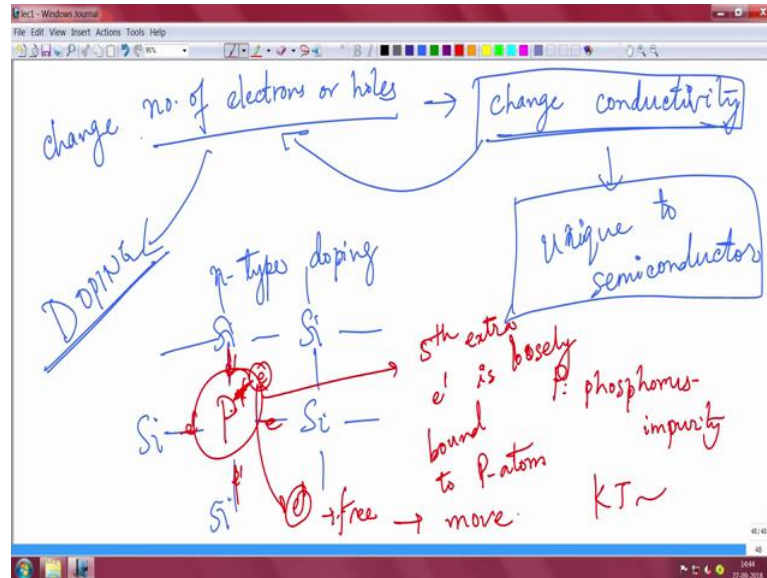 lec1 - Windows Journal
File Edit View Insert Actions Tools Help
change no. of electrons or holes → change conductivity
Unique to
semiconductor
DOPING
n-type doping
Si - Si -
Si - P - Si -
e e e e
Si
5th extra
e is loosely
bound
to P-atoms
P: phosphorus-
impurity
e → free → move.
KT~
48/48
48
14:44
27-09-2018